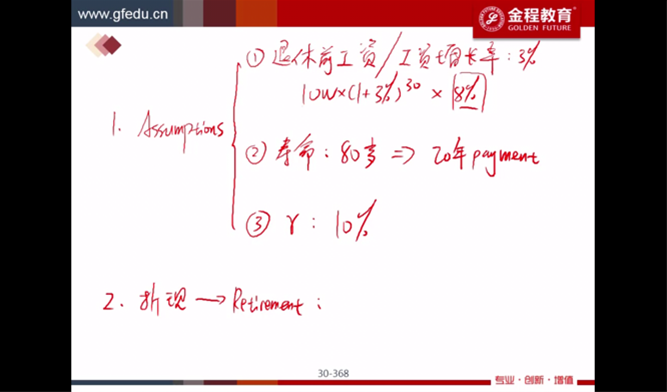 www.gfedu.cn
金程教育
GOLDEN FUTURE
1. Assumptions
① 退休前工资/工资增长率:3%
10W×(1+3%)³⁰ × 8%
② 寿命:80岁 => 20年payment
③ r: 10%
2. 折现 → Retirement:
30-368
专业·创新·增值